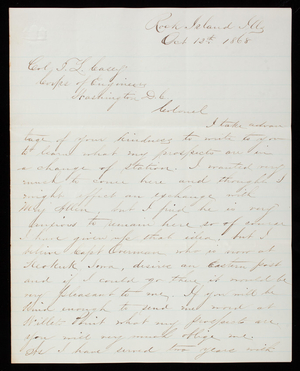 Rock Island Ills
Oct 13th 1868
Col. T. L. Casey
Corps of Engineers
Washington D.C.
Colonel
I take advan-
tage of your kindness to write to you
to learn what my prospects are on
a change of station. I wanted very
much to come here and thought I
might effect an exchange with
Maj. but I find he is very
anxious to remain here so of course
I have given up that idea. but I
believe Capt who is now at
Keokuk Iowa, desires an Eastern post
and if I could go there it would be
very pleasant to me. If you will be
kind enough to send me word at
Willets Point what my prospects are
you will very much oblige me.
I have served two years with